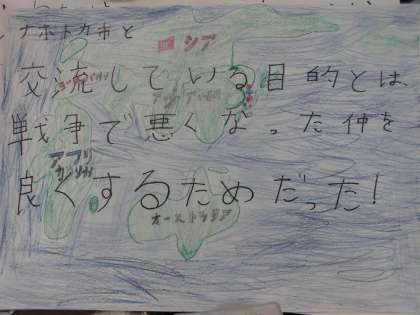 ナホトカ市と
交流している目的とは、
戦争で悪くなった仲を
良くするためだった!
シア
アフリカ
オーストラリア